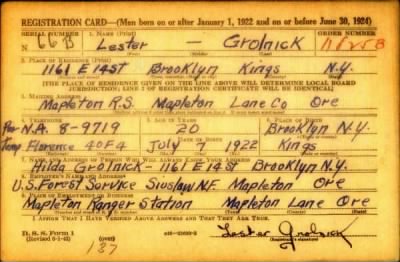 REGISTRATION CARD—(Men born on or after January 1, 1922 and on or before June 30, 1924)
SERIAL NUMBER 1. NAME (Print) ORDER NUMBER
N 66B Lester — Grolnick 11825B
(First) (Middle) (Last)
2. PLACE OF RESIDENCE (Print)
1161 E 14 St Brooklyn Kings N.Y.
[THE PLACE OF RESIDENCE GIVEN ON THE LINE ABOVE WILL DETERMINE LOCAL BOARD
JURISDICTION; LINE 2 OF REGISTRATION CERTIFICATE WILL BE IDENTICAL]
3. MAILING ADDRESS
Mapleton R.S. Mapleton Lane Co Ore
4. TELEPHONE 5. AGE IN YEARS 6. PLACE OF BIRTH
Per N.A. 8-9719 20 Brooklyn N.Y.
DATE OF BIRTH
Temp Florence 40F4 July 7 1922 Kings
7. NAME AND ADDRESS OF PERSON WHO WILL ALWAYS KNOW YOUR ADDRESS
Hilda Grolnick - 1161 E 14 St Brooklyn N.Y.
8. EMPLOYER'S NAME AND ADDRESS
U.S. Forest Service Siuslaw N.F. Mapleton Ore
9. PLACE OF EMPLOYMENT OR BUSINESS
Mapleton Ranger Station Mapleton Lane Ore
I AFFIRM THAT I HAVE VERIFIED ABOVE ANSWERS AND THAT THEY ARE TRUE.
D. S. S. Form 1
(Revised 6-1-42) (over) Lester Grolnick
137 (Registrant's signature)